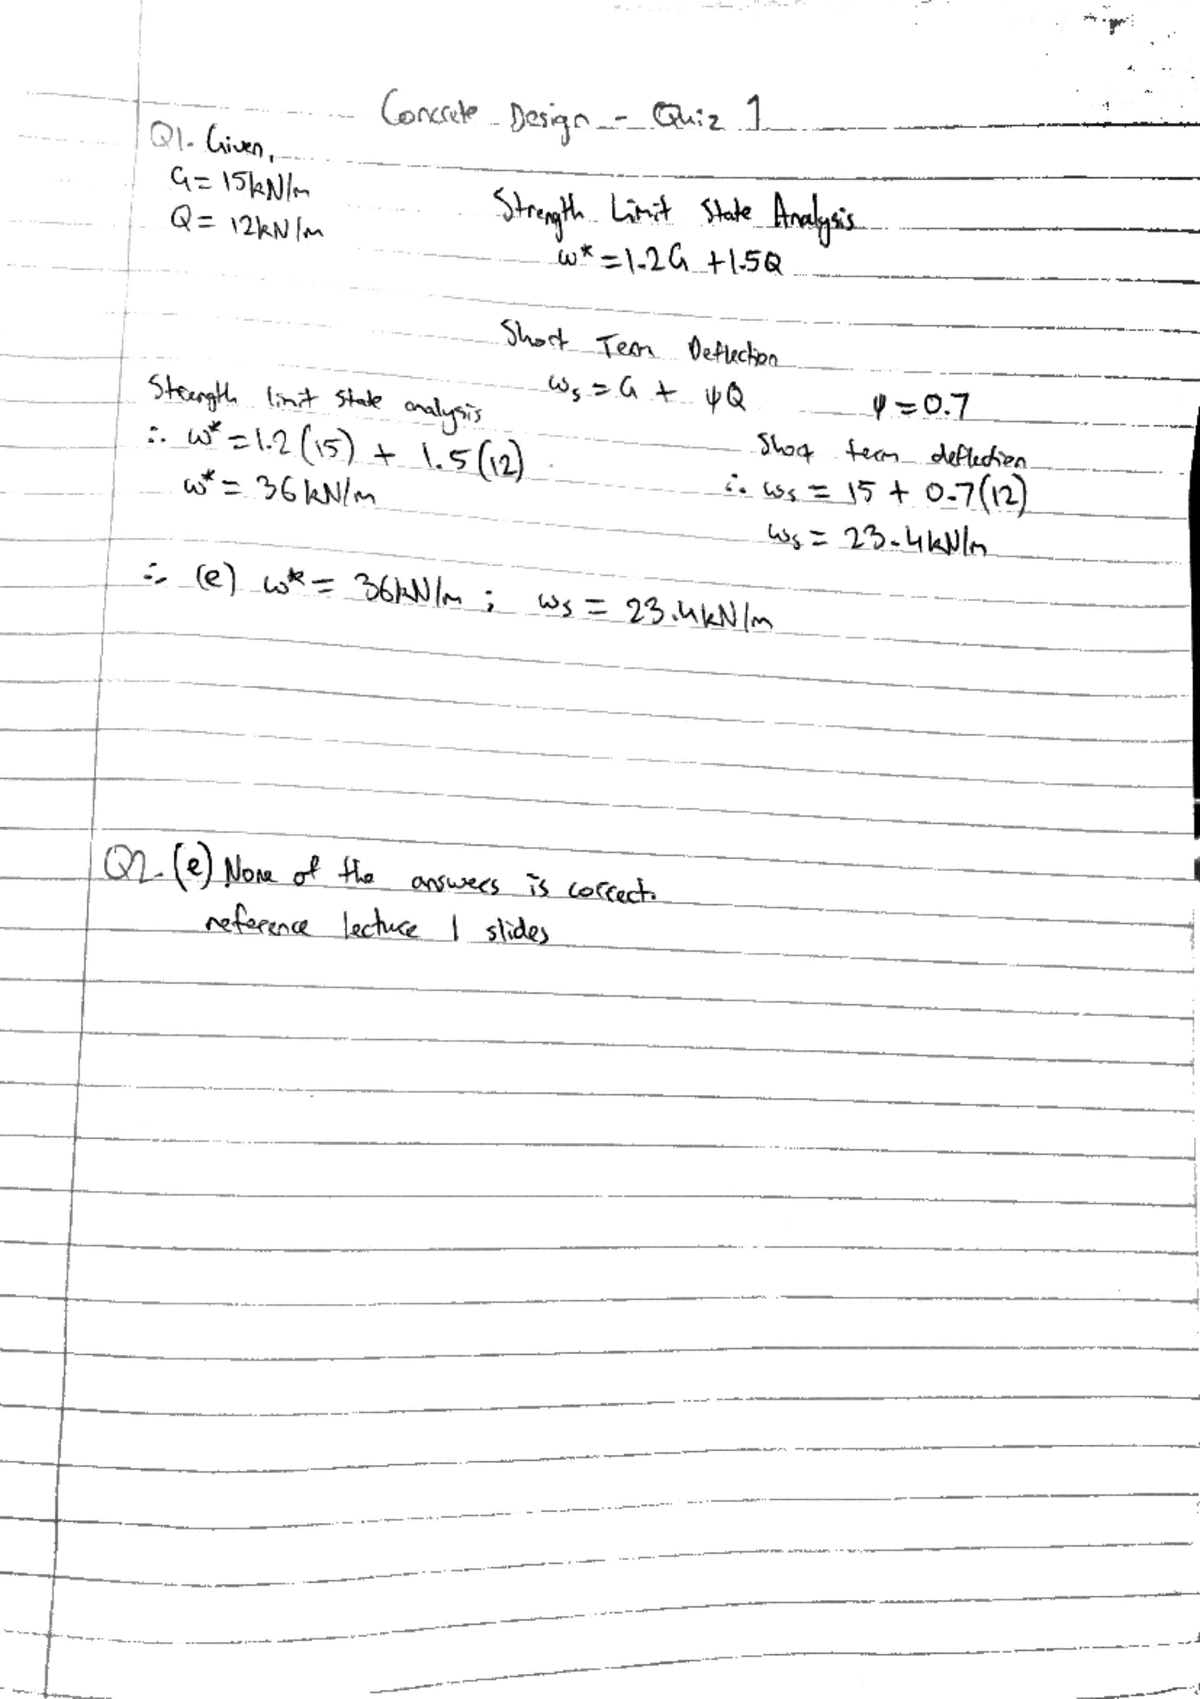 Concrete Design - Quiz 1
Q1. Given,
G = 15kN/m
Q = 12kN/m
Strength Limit State Analysis
w* = 1.2G + 1.5Q
Short Term Deflection
ws = G + ψQ ψ = 0.7
Strength limit state analysis
∴ w* = 1.2(15) + 1.5(12)
w* = 36kN/m
Short term deflection
∴ ws = 15 + 0.7(12)
ws = 23.4kN/m
∴ (e) w* = 36kN/m ; ws = 23.4kN/m
Q2. (e) None of the answers is correct.
reference lecture 1 slides